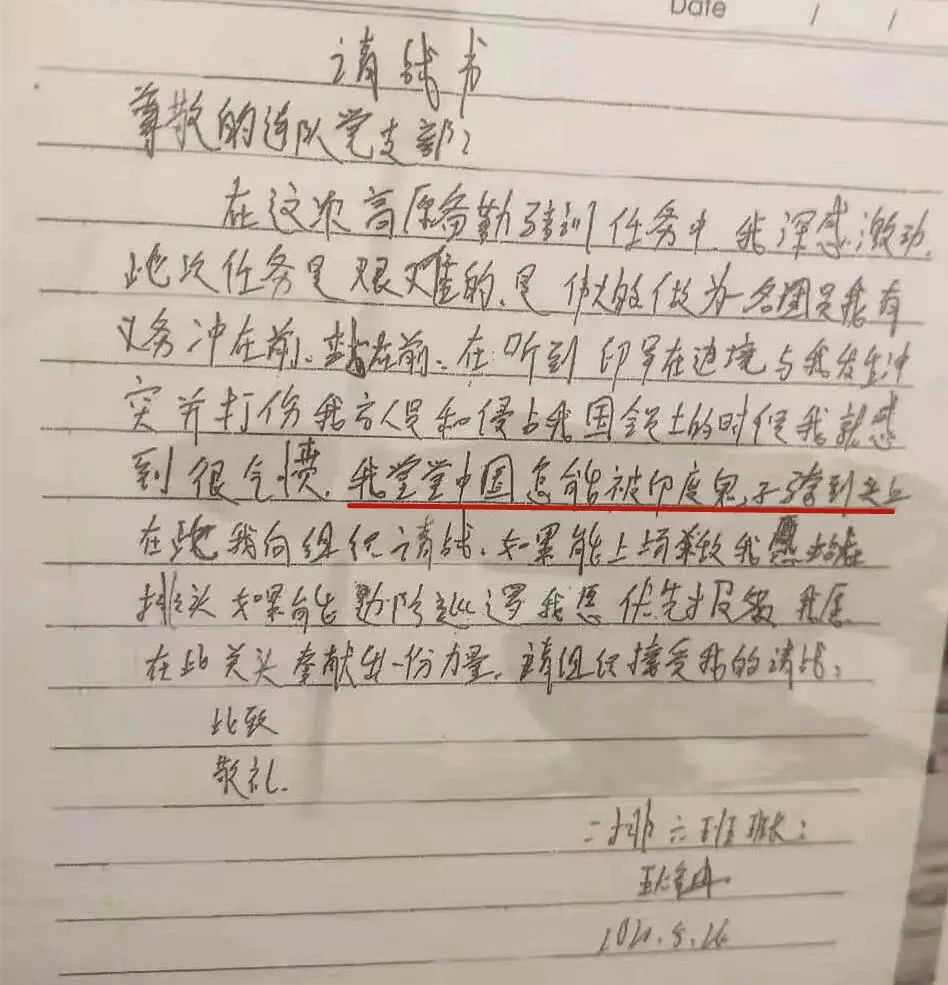 Date / /
请战书
尊敬的连队党支部：
在这次高原备勤驻训任务中，我深感激动，
此次任务是艰难的、是伟大的做为一名团员我有
义务冲在前、站在前、在听到印军在边境与我发生冲
突并打伤我方人员和侵占我国领土的时候我就感
到很气愤，我堂堂中国怎能被印度鬼子骑到头上
在此我向组织请战、如果能上场杀敌我愿站在
排头 如果能 巡逻我愿优先报名 我愿
在此关头奉献出一份力量，请组织接受我的请战，
此致
敬礼.
二排六班班长：